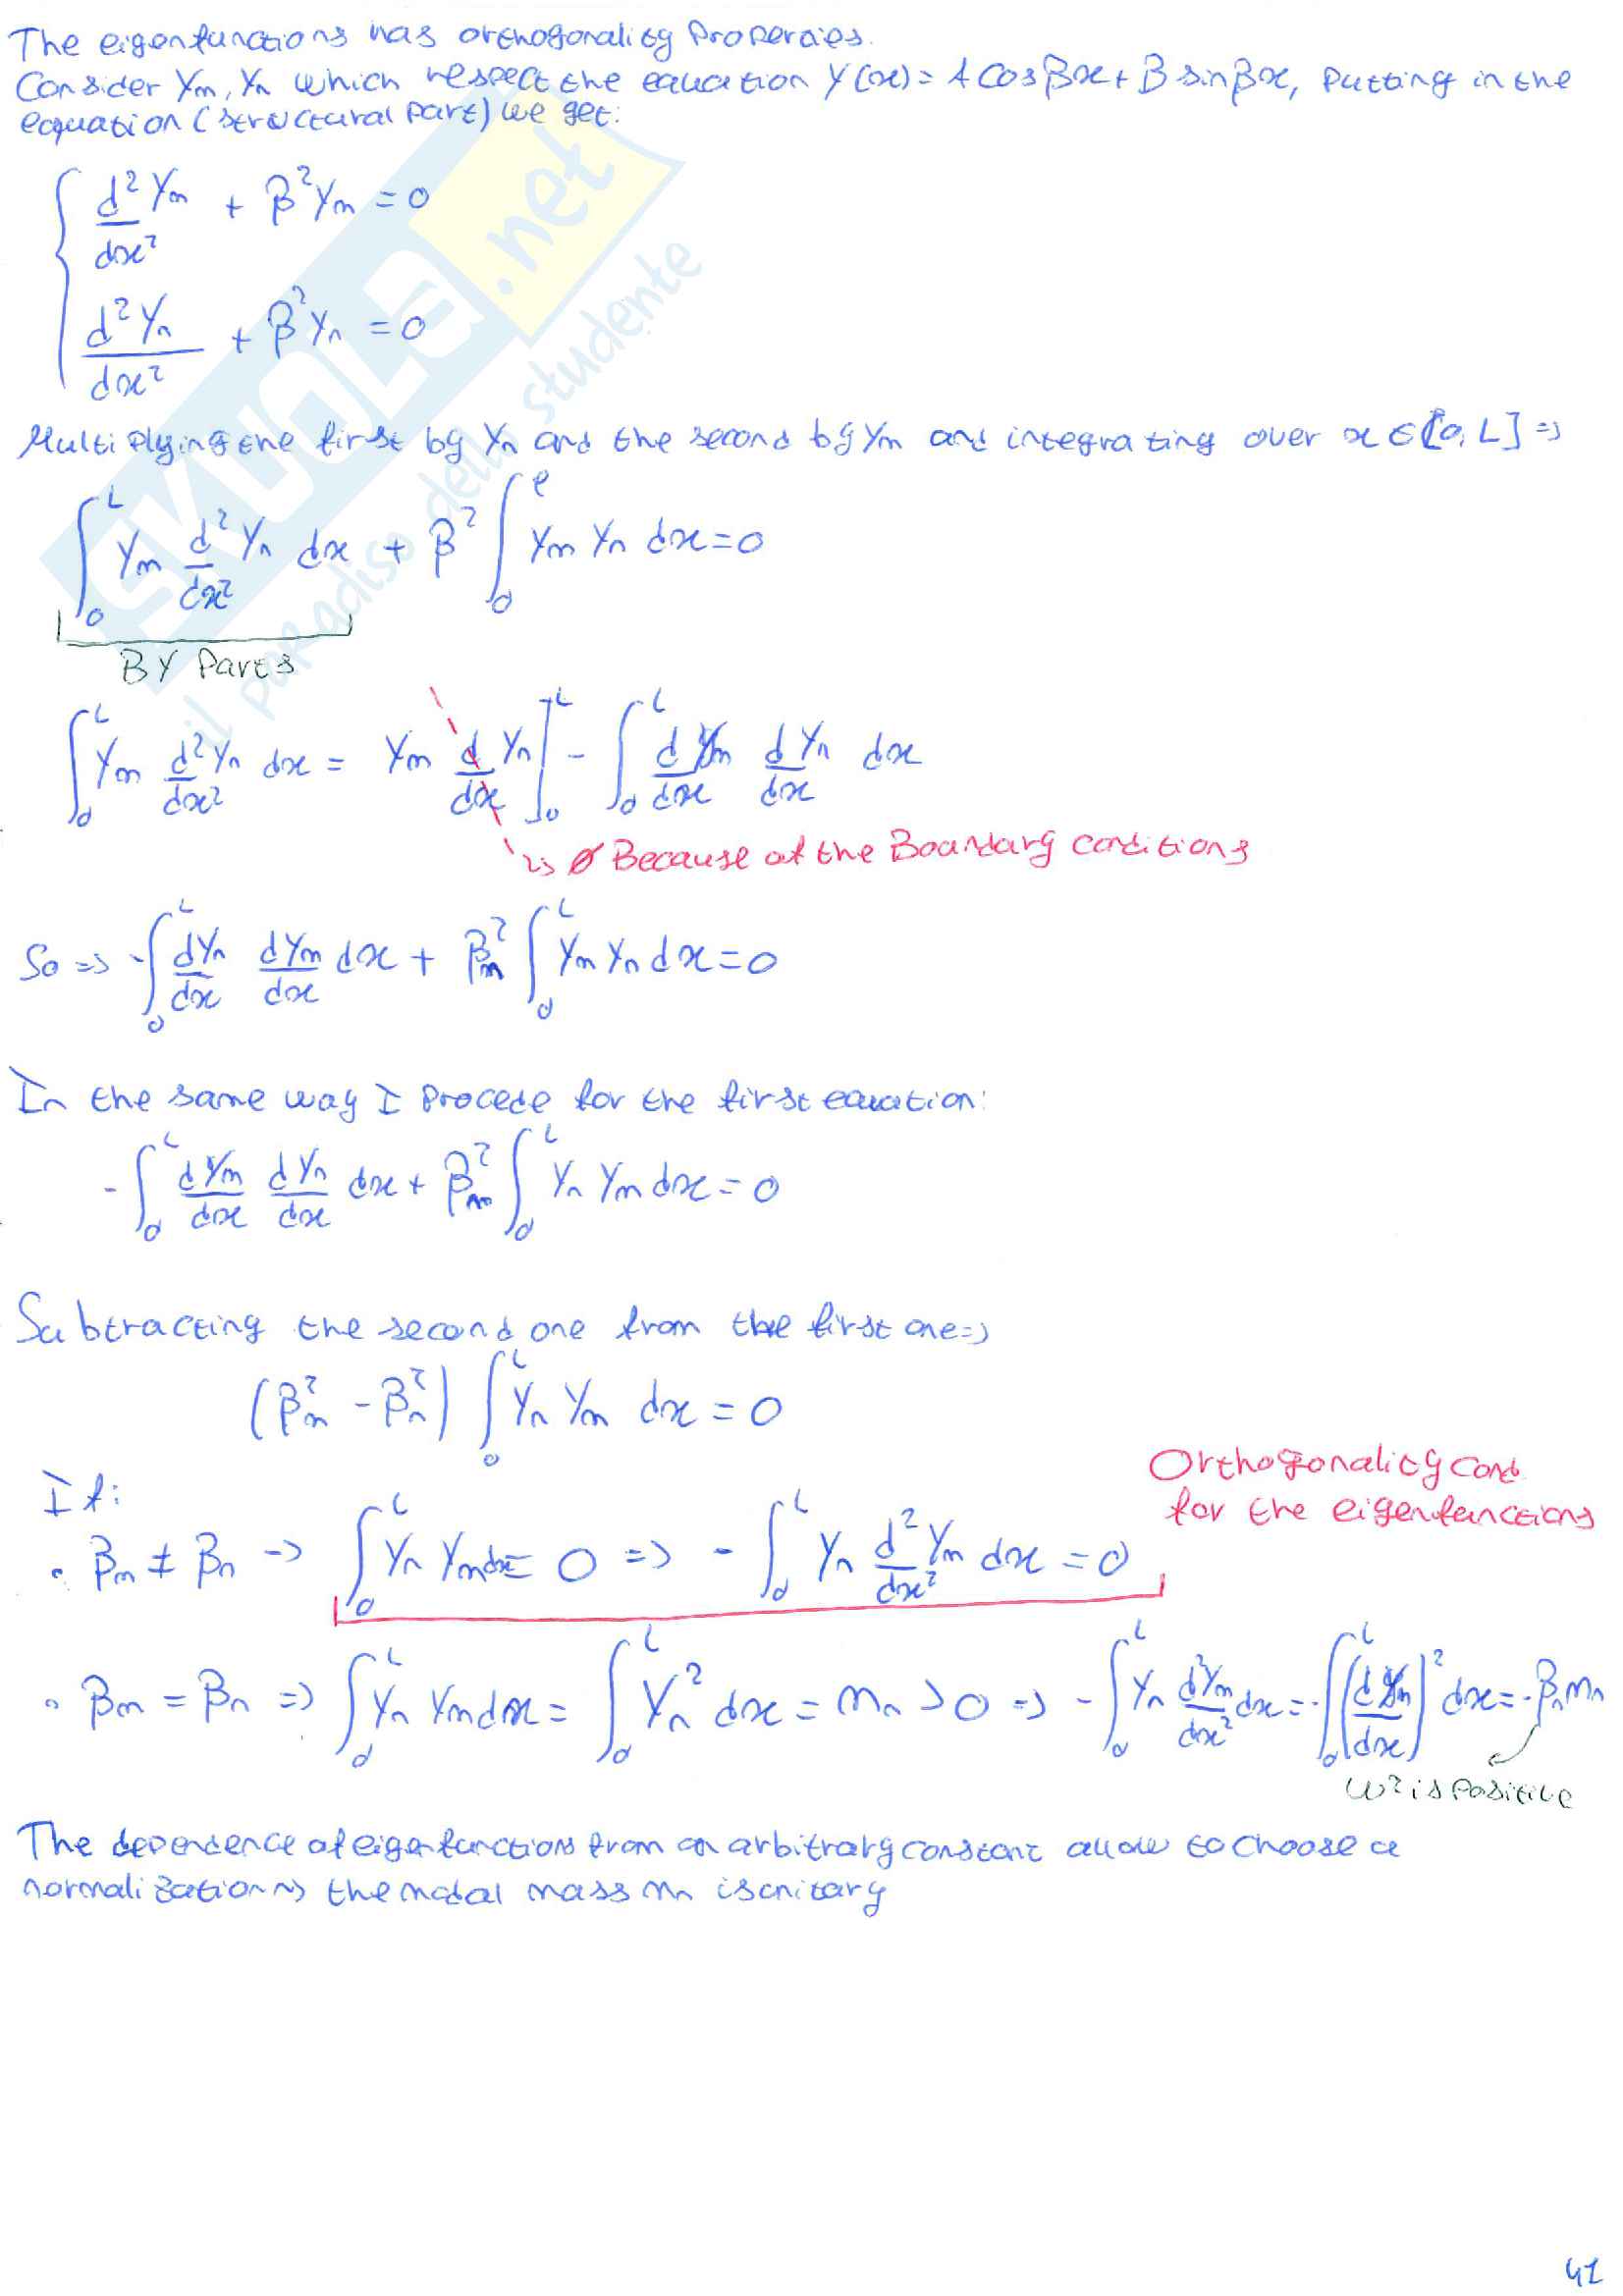 The eigenfunctions has orthogonality Properties.
Consider Ym, Yn which respect the equation Y(x) = A cos βx + B sin βx, Putting in the
equation (structural part) we get:
{ d²Ym/dx² + β²Ym = 0
d²Yn/dx² + β²Yn = 0
Multiplying the first by Yn and the second by Ym and integrating over x ∈ [0, L] =>
∫₀ᴸ Ym d²Yn/dx² dx + β² ∫₀ᵉ Ym Yn dx = 0
BY Parts
∫₀ᴸ Ym d²Yn/dx² dx = Ym d/dx Yn]₀ᴸ - ∫₀ᴸ dYm/dx dYn/dx dx
is ∅ Because of the Boundary conditions
So => -∫₀ᴸ dYn/dx dYm/dx dx + βn² ∫₀ᴸ Ym Yn dx = 0
In the same way I Procede for the first equation:
-∫₀ᴸ dYm/dx dYn/dx dx + βm² ∫₀ᴸ Yn Ym dx = 0
Subtracting the second one from the first one =>
(βm² - βn²) ∫₀ᴸ Yn Ym dx = 0
Orthogonality cond.
for the eigenfunctions
If:
• βm ≠ βn -> ∫₀ᴸ Yn Ym dx = 0 => -∫₀ᴸ Yn d²Ym/dx² dx = 0
• βm = βn => ∫₀ᴸ Yn Ym dx = ∫₀ᴸ Yn² dx = mn > 0 => -∫₀ᴸ Yn d²Ym/dx² dx = -∫₀ᴸ (dYn/dx)² dx = -βn mn
ω² is Positive
The dependence of eigenfunctions from an arbitrary constant allow to choose a
normalization => the modal mass mn is unitary
41
SKUOLA.net
il paradiso dello studente